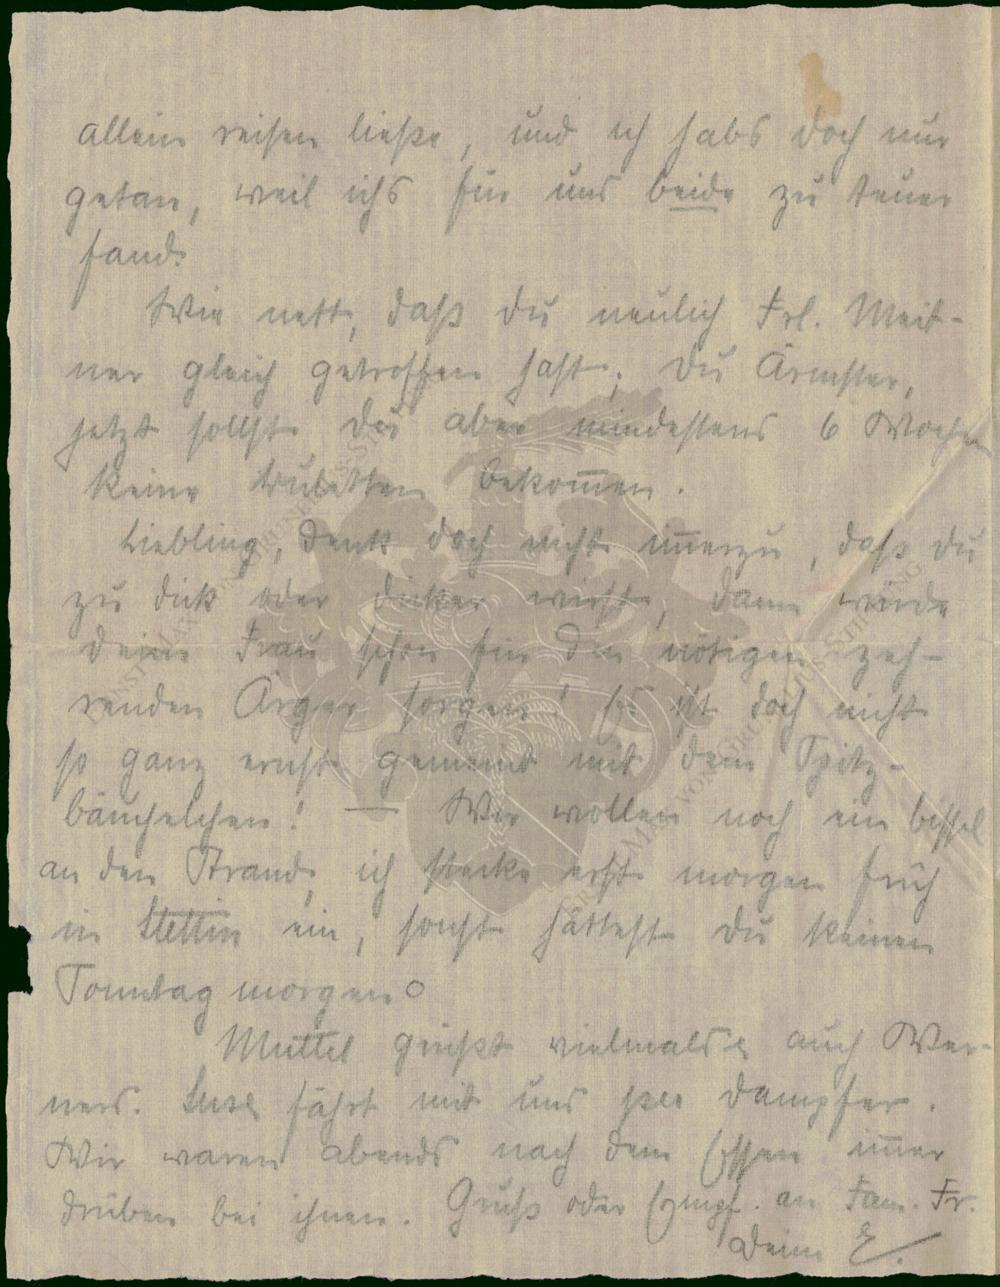 allein reisen ließe, und ich habs doch nur
getan, weil ichs für uns beide zu teuer
fand.
Wie nett, daß du neulich Frl. Meit-
ner gleich getroffen hast; du Ärmster,
jetzt sollst du aber mindestens 6 Wochen
keine bekom̅en.
Liebling, denk doch nicht im̅erzu, daß du
zu dick oder dicker wirst, dann würde
deine Frau schon für den nötigen zeh-
renden Ärger sorgen! Es ist doch nicht
so ganz ernst gemeint mit dem Spitz-
bäuchelchen! — Wir wollen noch ein bissel
an den Strand, ich stecke erst morgen früh
in Stettin ein, sonst hättest du keinen
Sonntag morgen
Muttel grüßt vielmals, auch Wer-
ners. fährt mit uns per Dampfer.
Wir waren abends nach dem Essen im̅er
drüben bei ihnen. Gruß oder Empf. an Fam. Fr.
Deine E.
ERNST MAX VON GRUNELIUS-STIFTUNG
ERNST MAX VON GRUNELIUS-STIFTUNG